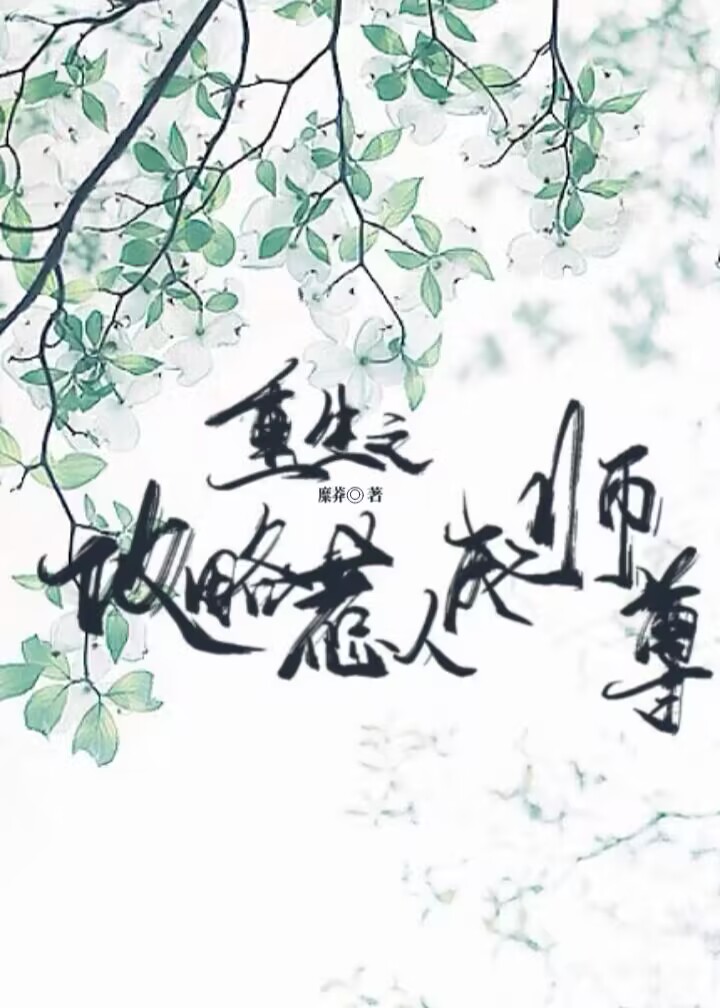 重生之
糜莽◎著
攻略惹人成师尊